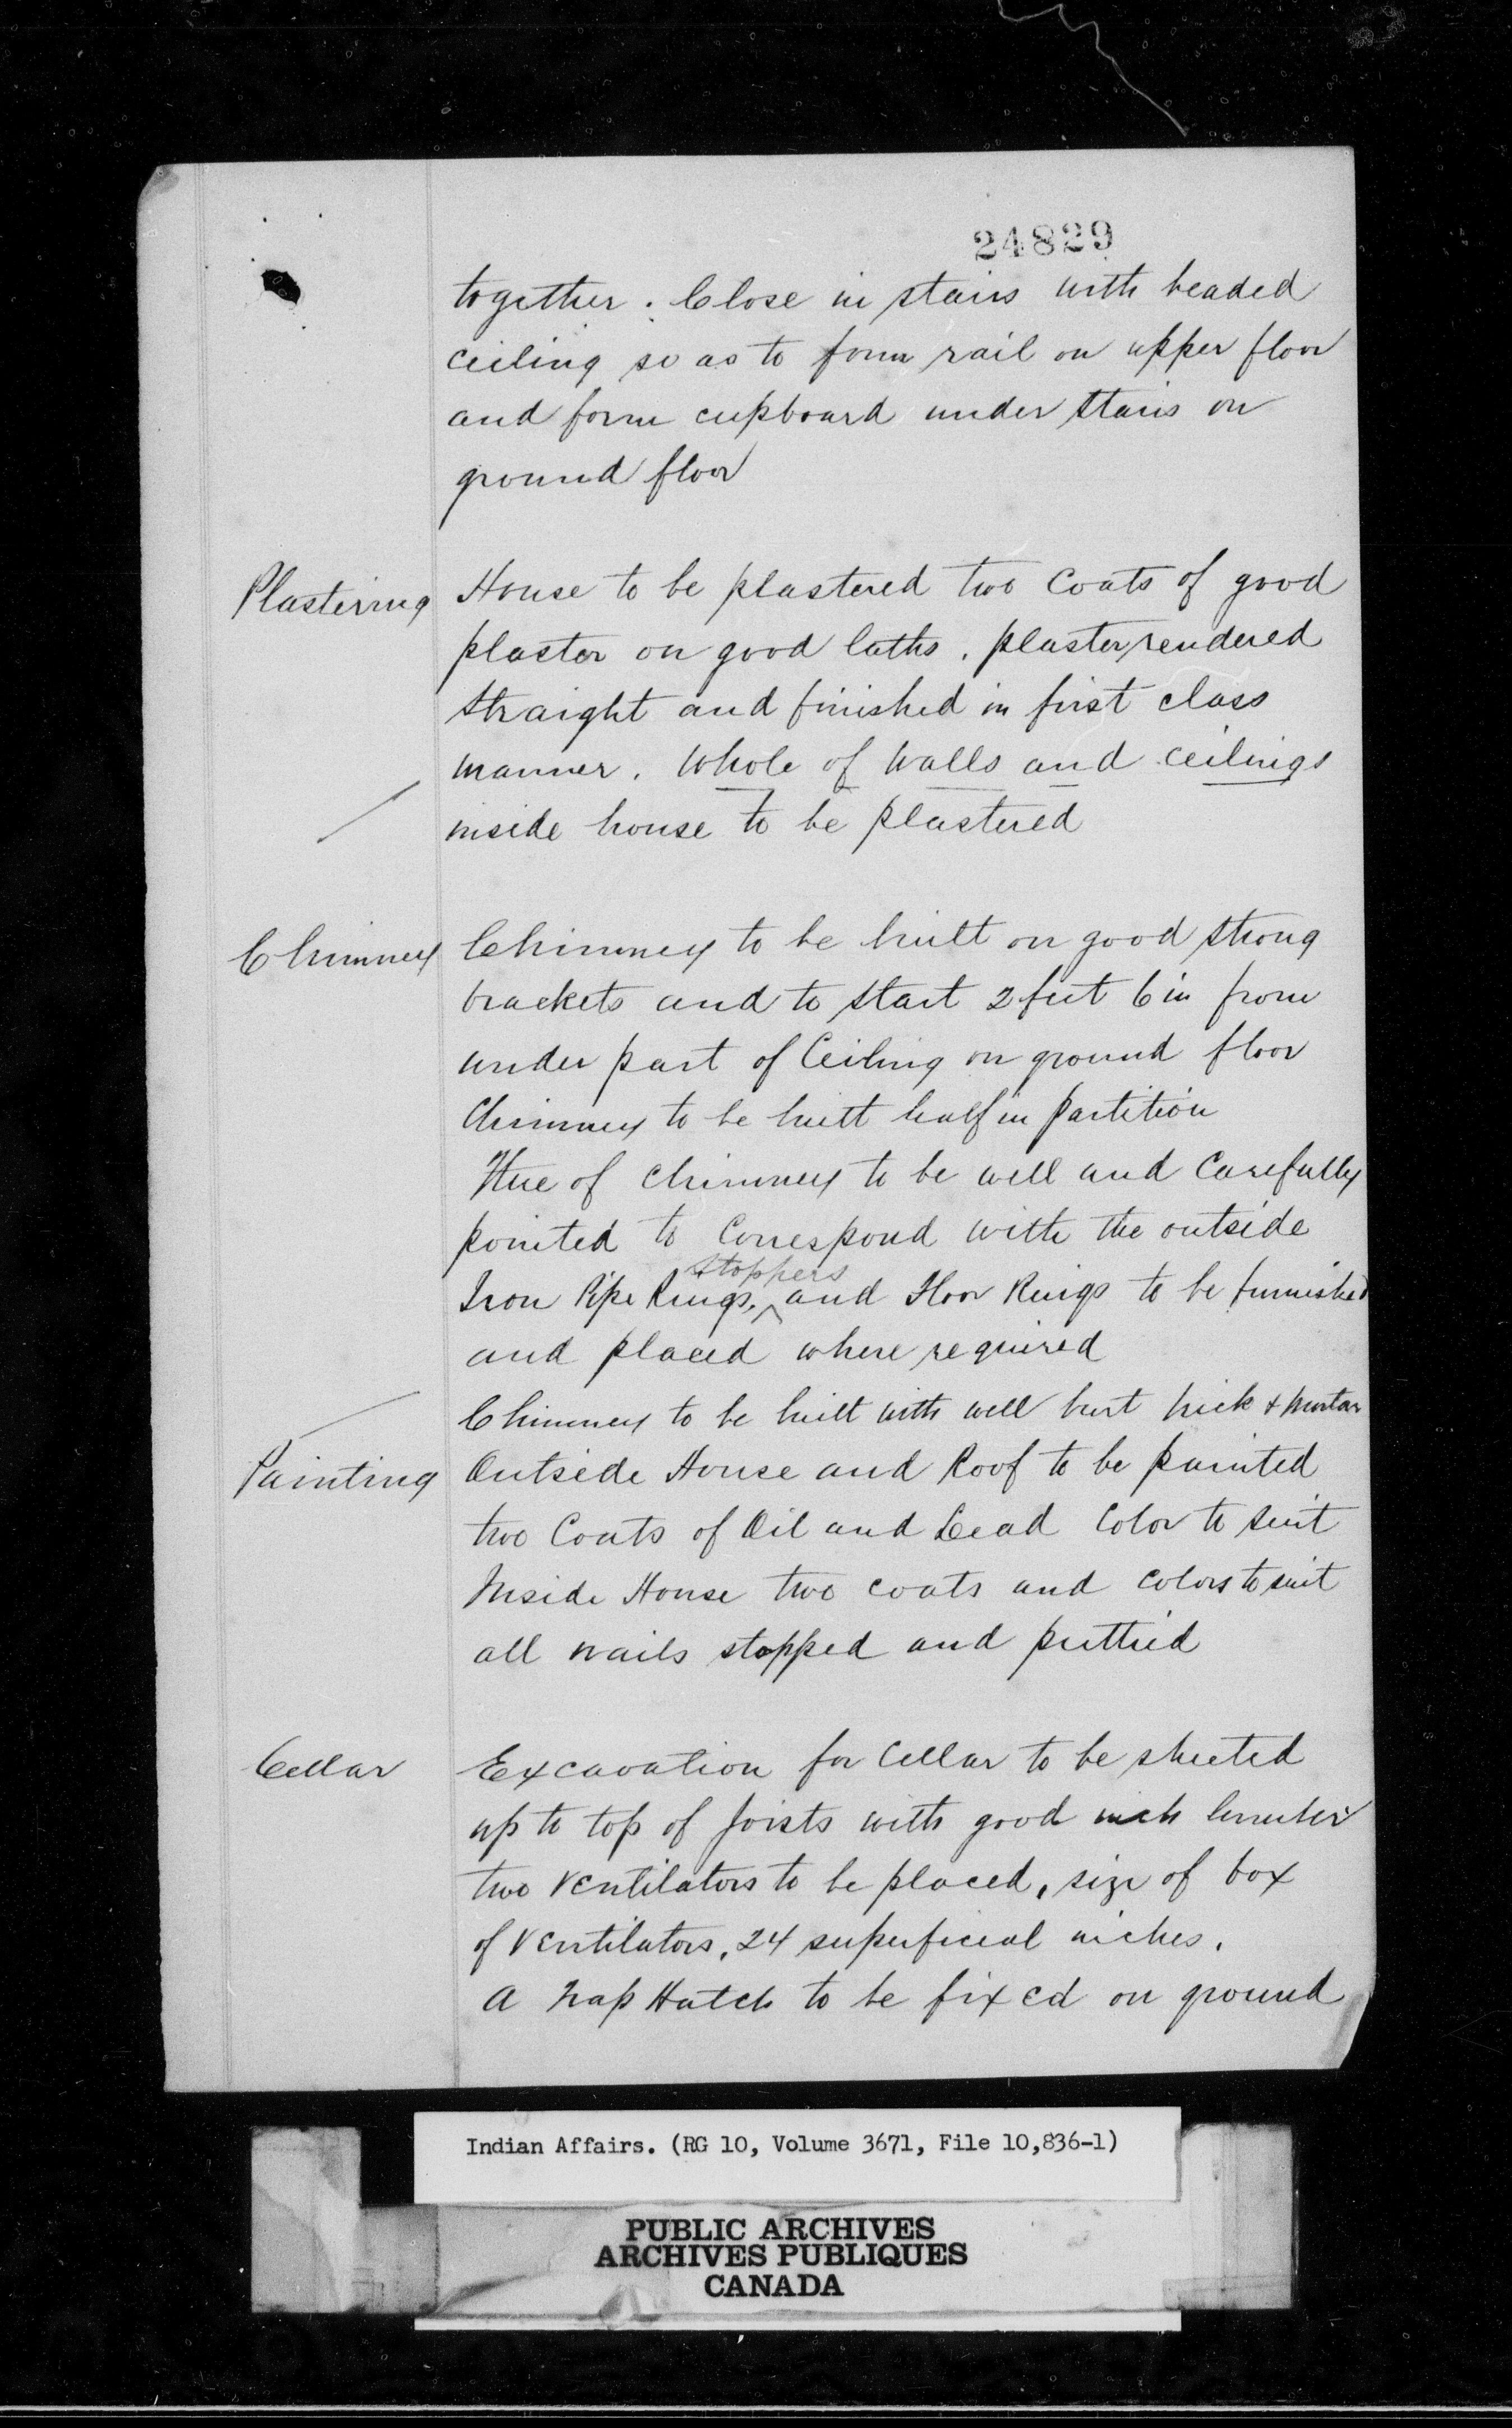 24829
together. Close in stairs with beaded
ceiling so as to form rail on upper floor
and form cupboard under stairs on
ground floor
Plastering House to be plastered two Coats of good
plaster on good laths. plaster rendered
straight and finished in first class
manner. Whole of Walls and ceilings
inside house to be plastered
Chimney Chimney to be built on good strong
brackets and to start 2 feet 6 in from
under part of Ceiling on ground floor
Chimney to be built half in partition
Flue of chimney to be well and Carefully
pointed to Correspond with the outside
stoppers
Iron Pipe Rings, ^ and Floor Rings to be furnished
and placed where required
Chimney to be built with well burt brick & mortar
Painting Outside House and Roof to be painted
two Coats of Oil and Lead Color to suit
Inside House two coats and colors to suit
all nails stopped and puttied
Cellar Excavation for Cellar to be sheeted
up to top of Joists with good inch lumber
two ventilators to be placed, size of box
of ventilators, 24 superficial inches.
A Trap Hatch to be fixed on ground
Indian Affairs. (RG 10, Volume 3671, File 10,836-1)
PUBLIC ARCHIVES
ARCHIVES PUBLIQUES
CANADA